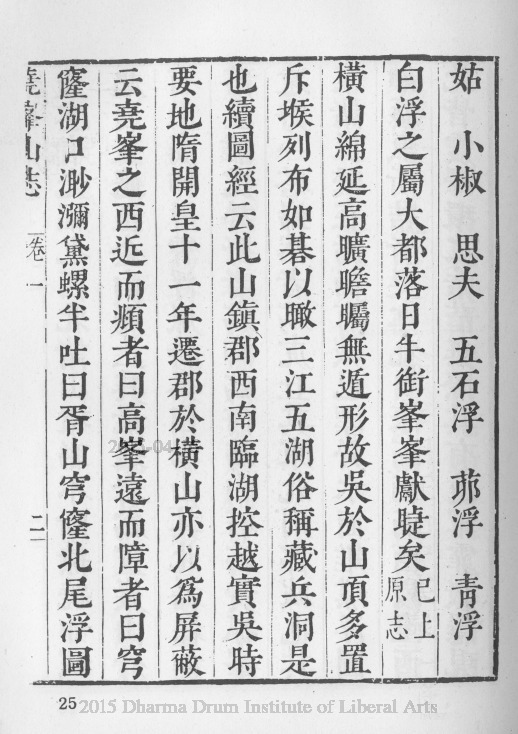 姑 小椒 思夫 五石浮 茆浮 青浮
白浮之屬大都落日半銜峯峯獻睫矣已上原志
橫山綿延高曠瞻矚無遁形故吳於山頂多置
斥堠列布如棊以瞰三江五湖俗稱藏兵洞是
也續圖經云此山鎭郡西南臨湖控越實吳時
要地隋開皇十一年遷郡於橫山亦以爲屏蔽
云堯峯之西近而頫者曰高峯遠而障者曰穹
窿湖口渺瀰黛螺半吐曰胥山穹窿北尾浮圖
堯峯山志 卷一 二
25
2015 Dharma Drum Institute of Liberal Arts